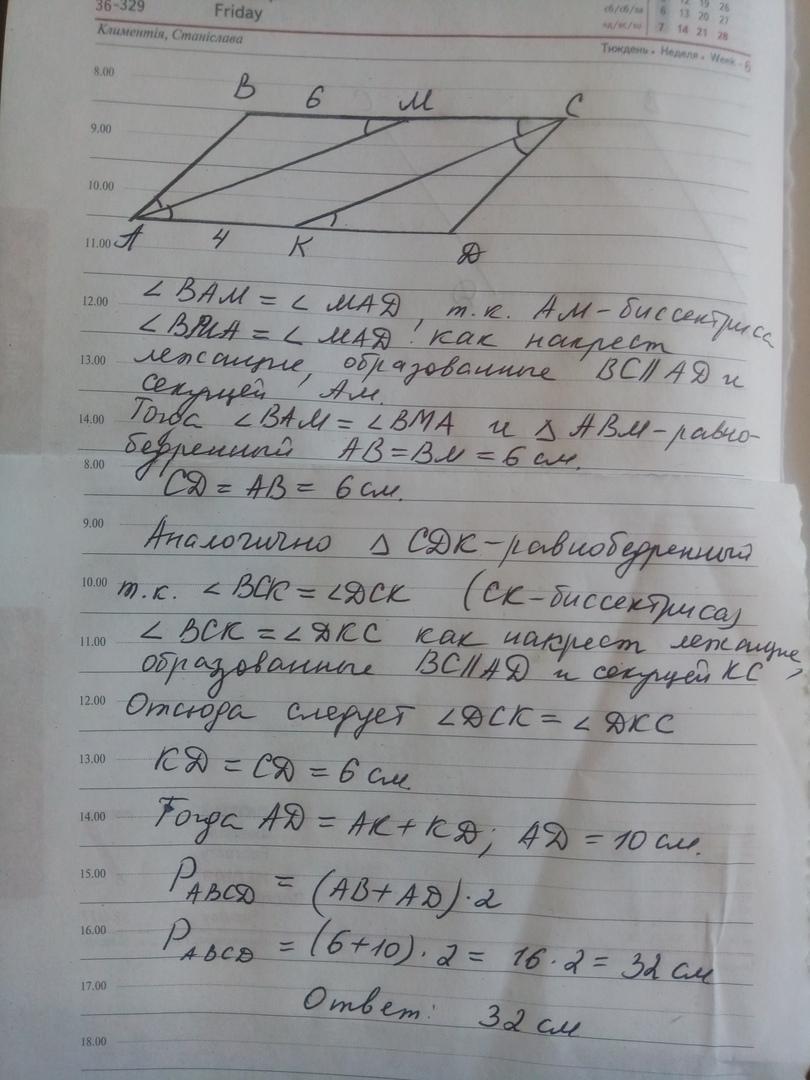 36-329
Friday
12 19 26
сб/сб/sa 6 13 20 27
нд/вс/su 7 14 21 28
Климентія, Станіслава
Тиждень • Неделя • Week - 6
8.00
B 6 M C
9.00
10.00
11.00 A 4 K D
12.00 ∠BAM = ∠MAD, т.к. AM-биссектриса
∠BMA = ∠MAD как накрест
13.00 лежащие, образованные BC∥AD и
секущей AM.
14.00 Тогда ∠BAM = ∠BMA и △ABM-равно-
бедренный AB=BM=6 см.
8.00
CD = AB = 6 см.
9.00 Аналогично △CDK-равнобедренный
10.00 т.к. ∠BCK = ∠DCK (CK-биссектриса)
11.00 ∠BCK = ∠DKC как накрест лежащие,
образованные BC∥AD и секущей KC
12.00 Отсюда следует ∠DCK = ∠DKC
13.00 KD = CD = 6 см.
14.00 Тогда AD = AK + KD; AD = 10 см.
15.00 P ABCD = (AB + AD) · 2
16.00 P ABCD = (6+10) · 2 = 16 · 2 = 32 см
17.00 Ответ: 32 см
18.00